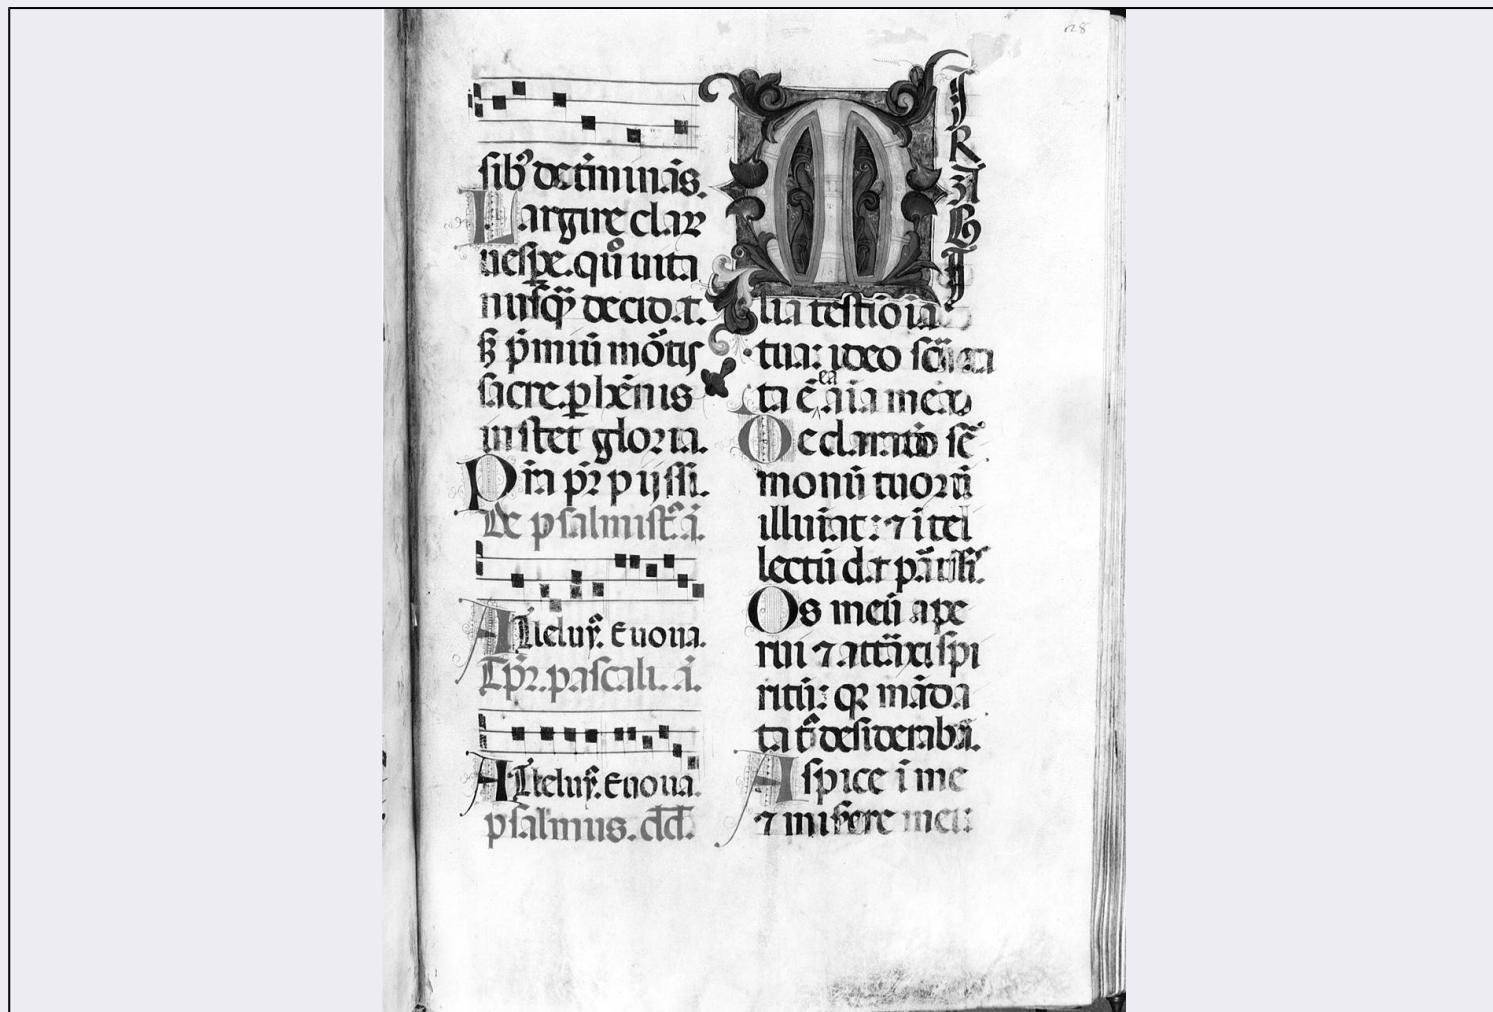 sibꝰ determinãs.
Largire clarũ
uespe. quo uita
nusqꝫ decidat.
sꝫ p̃miũ mortis
sacre. perhẽnis
instet gloria.
P̃ta pr̃ pijssi.
De psalmista. ã.
Alleluỹ. Euoua.
Tp̃r. pascali. ã.
Alleluỹ. Euoua.
psalmus. dd.
MIRABI
lia testiõia
tua: ideo scruta
ta ẽ ea aĩa mea
Declaratio ser
monũ tuorũ
illuĩat: ⁊ ĩtel
lectũ dat paruuli.
Os meũ ape
rui ⁊ attraxi spi
ritũ: qꝛ mãda
ta tua desiderabã.
Aspice ĩ me
⁊ miserere mei: